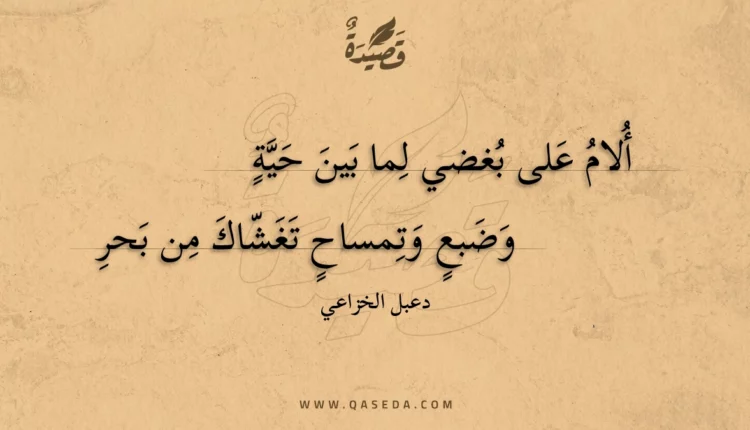 قَصِيْدَةٌ
أُلامُ عَلى بُغضي لِما بَينَ حَيَّةٍ
وَضَبعٍ وَتِمساحٍ تَغَشّاكَ مِن بَحرِ
دعبل الخزاعي
WWW.QASEDA.COM